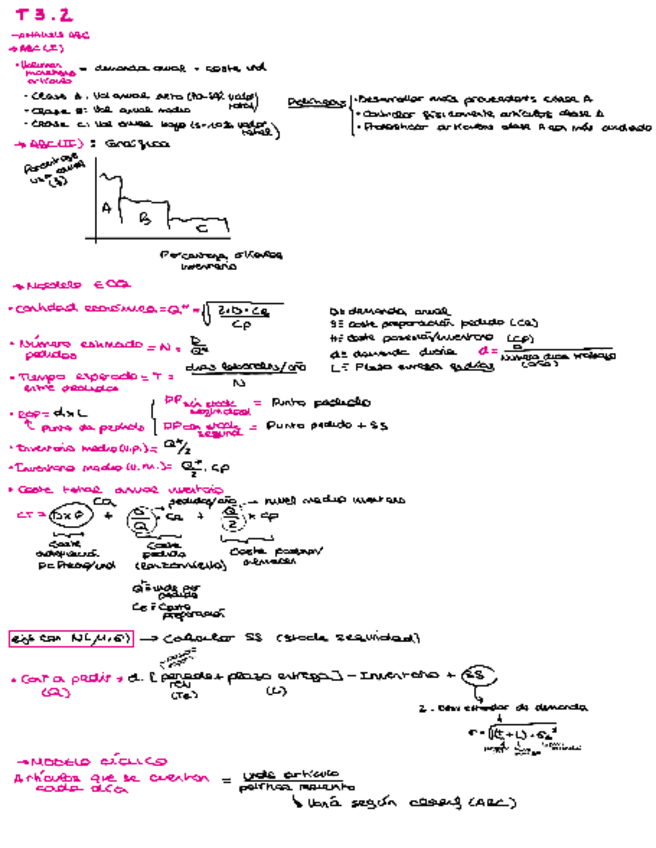 T 3.2
-ANÁLISIS ABC
→ ABC (I)
• Volumen monetario artículo = demanda anual · coste und
- Clase A: Vol anual alto (70-80% valor total)
- Clase B: Vol anual medio
- Clase C: Vol anual bajo (5-10% valor total)
Políticas
• Desarrollar más proveedores clase A
• Controlar físicamente artículos clase A
• Pronosticar artículos clase A con más cuidado
→ ABC (II): Gráfica
Porcentaje anual ($)
A B C
Porcentaje artículos inventario
→ Modelo EOQ
• Cantidad económica = Q* = √ 2·D·Ce / Cp
D = demanda anual
S = coste preparación pedido (Ce)
H = coste posesión/inventario (Cp)
d = demanda diaria d = D / Número días trabajo (año)
L = Plazo entrega
• Número estimado pedidos = N = D / Q*
• Tiempo esperado entre pedidos = T = días laborables/año / N
• ROP = d x L
↑ punto de pedido
PP sin stock seguridad = Punto pedido
PP con stock segurid = Punto pedido + SS
• Inventario medio (u.f.) = Q*/2
• Inventario medio (u.m.) = Q*/2 · Cp
• Coste total anual inventario
CT = D x P + D/Q · Ce + Q/2 x Cp
CA
pedidos/año
→ nivel medio inventario
Coste adquisición
P = Precio/und
Coste pedido (lanzamiento)
Coste posesión/almacen
Q = unds por pedido
Ce = Coste preparación
ejs con N(μ,σ) → Calcular SS (stock seguridad)
• Cant a pedir → d · [periodo rev + plazo entrega] - Inventario + SS
(Q) (L)
Z · Desv estandar de demanda
→ MODELO CÍCLICO
Artículos que se cuentan cada día = unds artículo / política recuento
↳ Vará según (ABC)